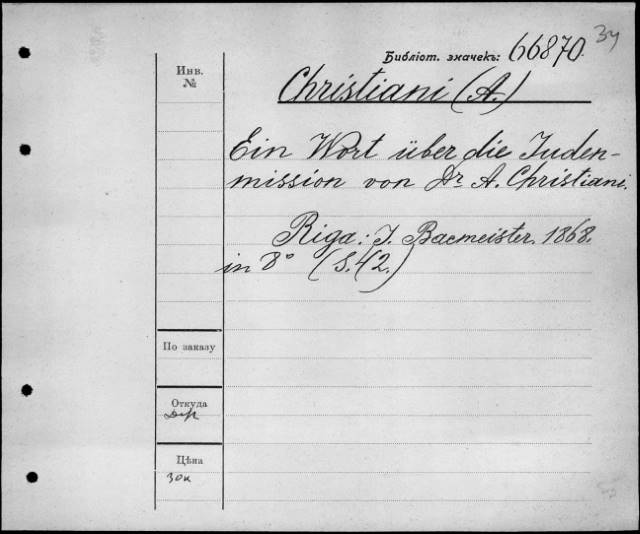 34
Библіот. значекъ: 66870.
Инв.
№
Christiani (A.)
Ein Wort über die Juden-
mission von Dr. A. Christiani.
Riga: J. Bacmeister. 1868.
in 8° (S. 42.)
По заказу
Откуда
Цѣна
30к